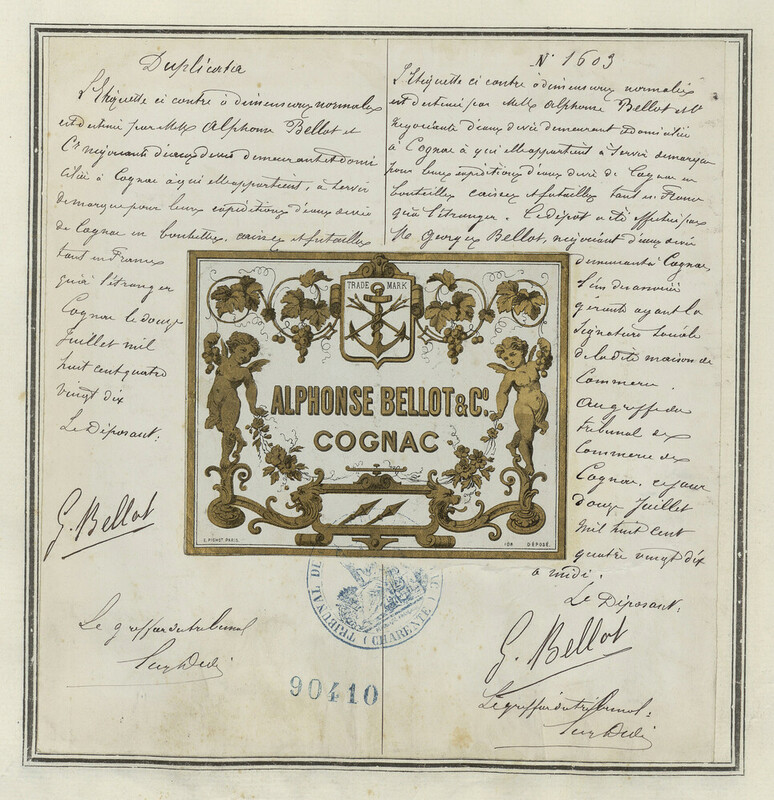 Duplicata
L'Etiquette ci contre à dimensions normales
est destinée par MM Alphonse Bellot et
Cie négociants d'eaux de vie demeurant et domi
ciliés à Cognac à qui elle appartient, à servir
de marque pour leurs expéditions d'eaux de vie
de Cognac en bouteilles, caisses et futailles
tant en France
qu'à l'étranger
Cognac le douze
Juillet mil
huit cent quatre
vingt dix
Le Déposant:
G. Bellot
Le greffier du tribunal
N° 1603
L'Etiquette ci contre à dimensions normales
est destinée par MM Alphonse Bellot et Cie
négociants d'eaux de vie demeurant et domiciliés
à Cognac à qui elle appartient à servir de marque
pour leurs expéditions d'eaux de vie de Cognac en
bouteilles caisses et futailles tant en France
qu'à l'étranger. Le dépôt a été effectué par
M. Georges Bellot, négociant d'eaux de vie
demeurant à Cognac
l'un des associés
gérants ayant la
signature sociale
de la dite maison de
Commerce.
au greffe du
tribunal de
Commerce de
Cognac, ce jour
douze Juillet
mil huit cent
quatre vingt dix
à midi.
Le Déposant:
G. Bellot
Le greffier du tribunal:
TRADE MARK
ALPHONSE BELLOT & Co.
COGNAC
PARIS.
DÉPOSÉ.
TRIBUNAL DE
(CHARENTE)
90410